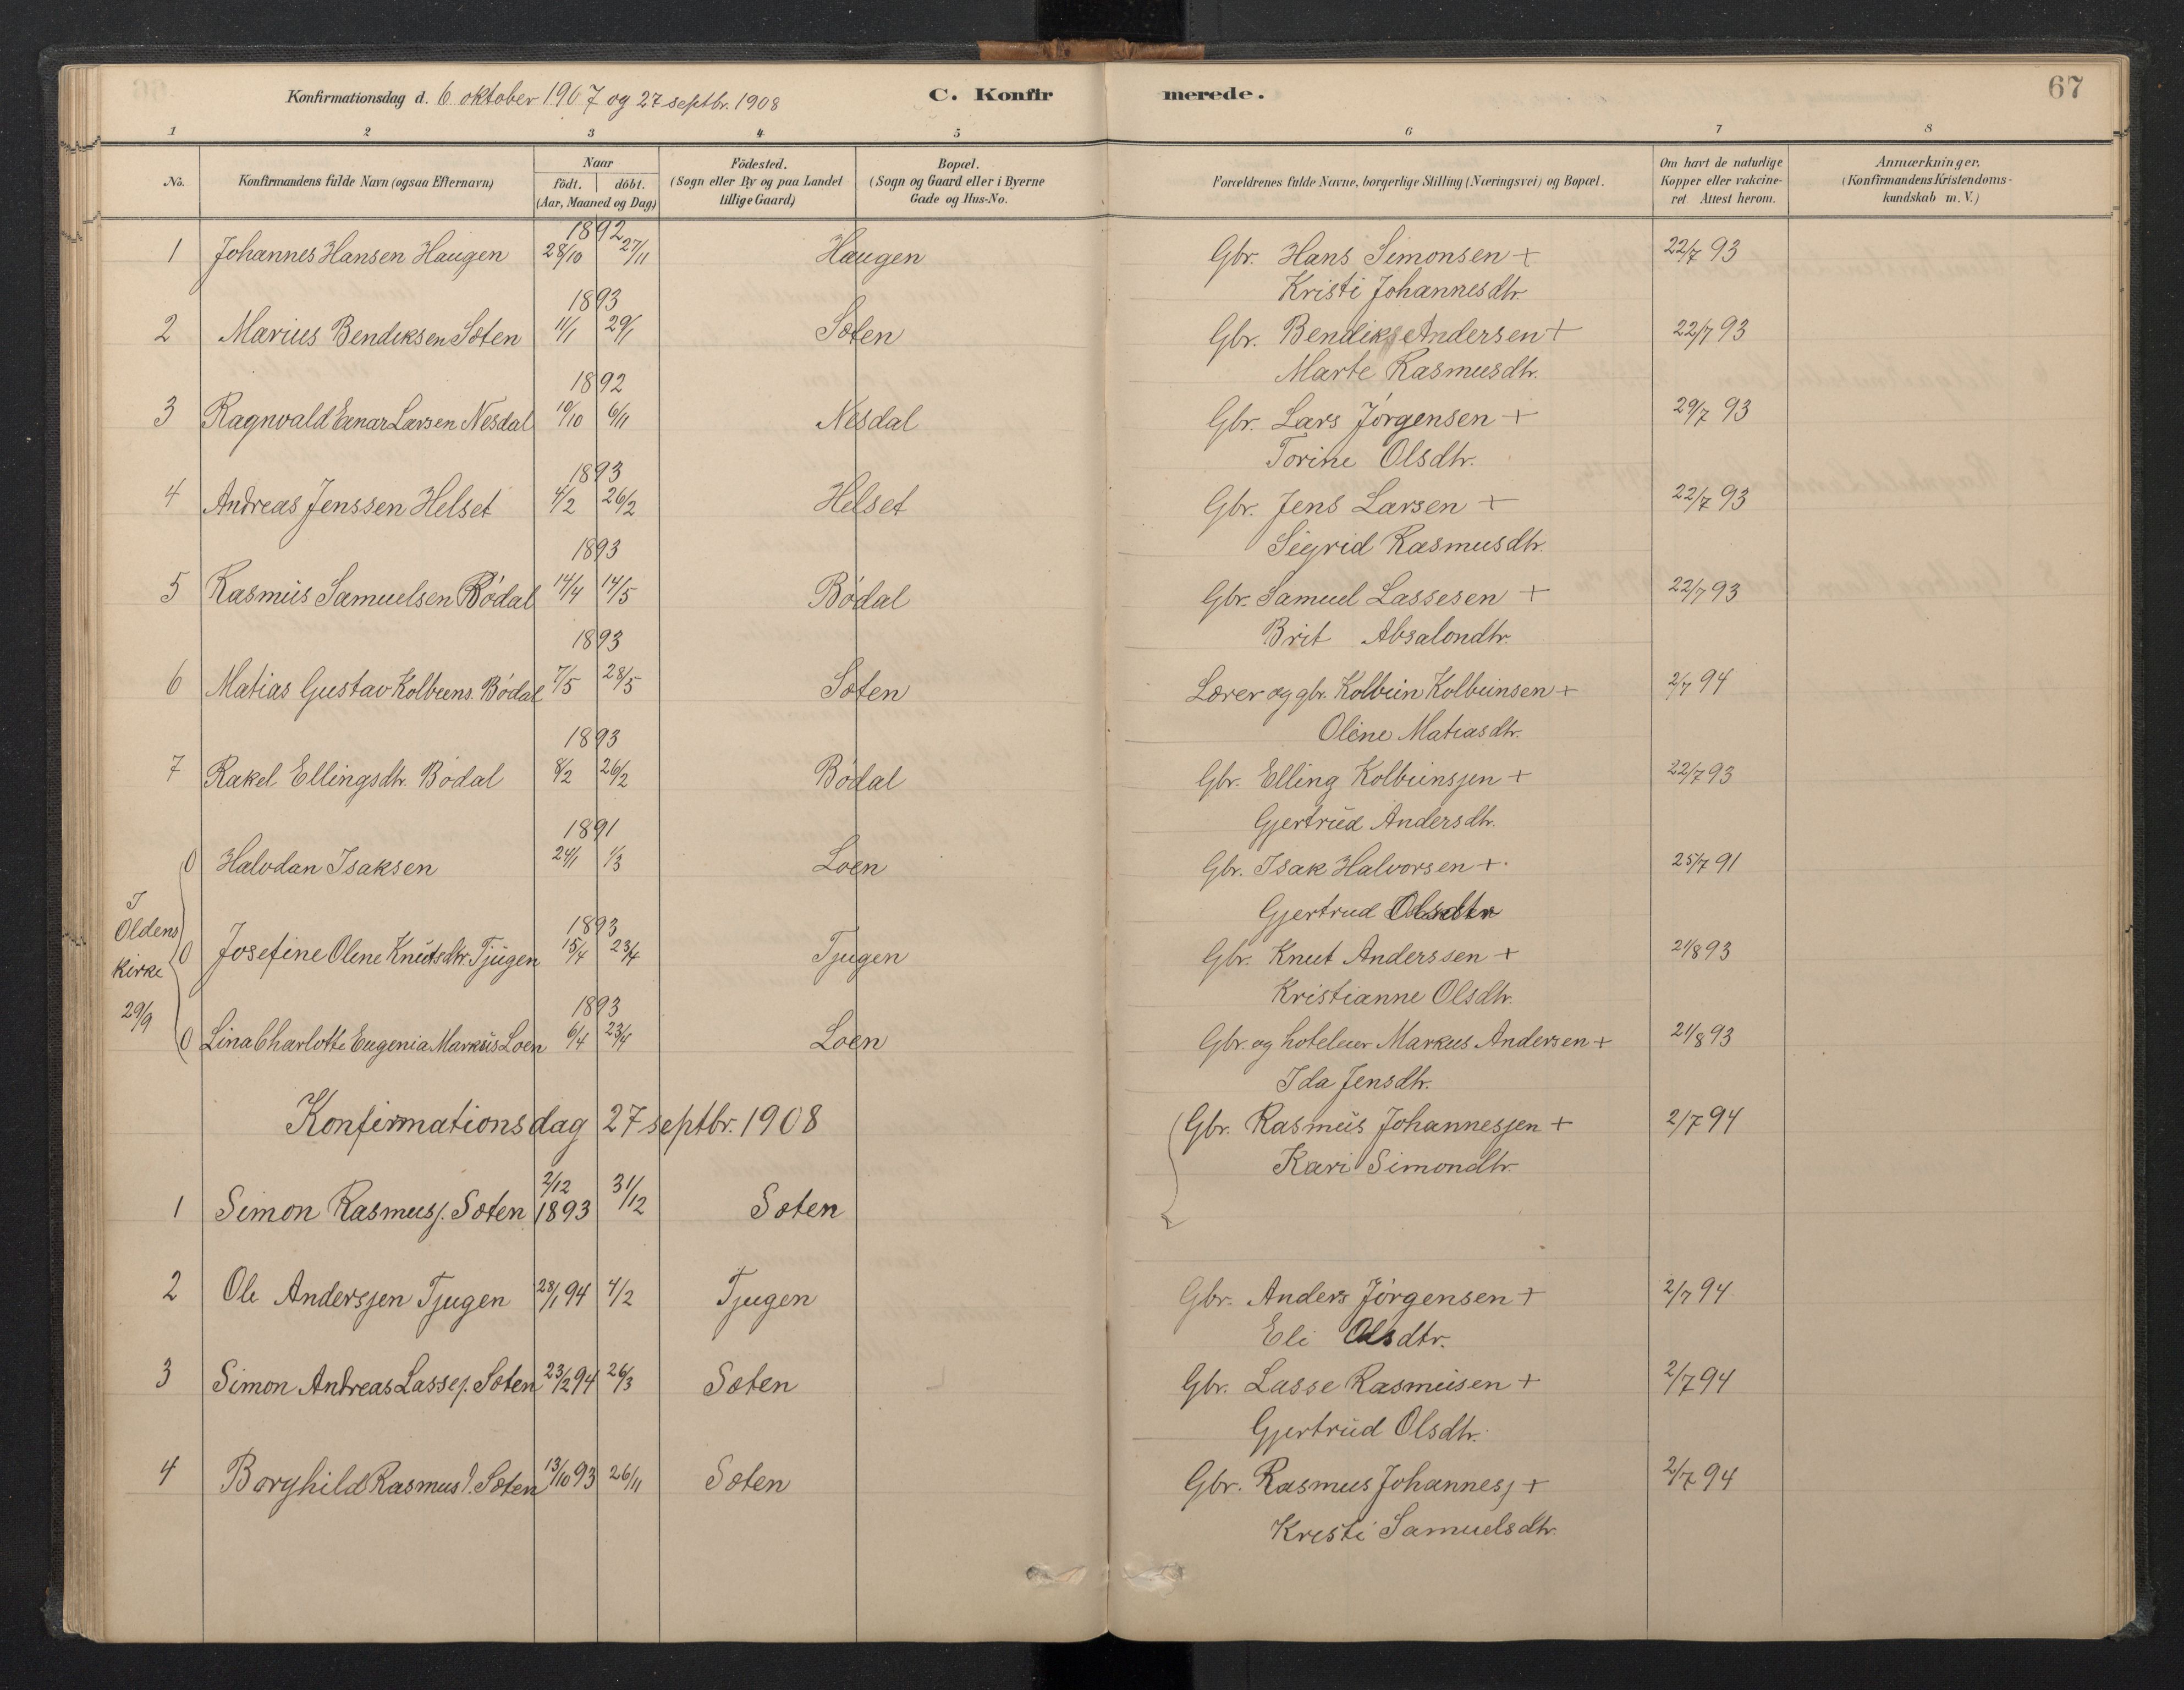 67
Konfirmationsdag d. 6. oktober 1907 og 27 septbr. 1908 C. Konfirmerede.
1 2 3 4 5 6 7 8
No. Konfirmandens fulde Navn (ogsaa Efternavn) Naar födt. döbt. (Aar, Maaned og Dag) Födested. (Sogn eller By og paa Landet tillige Gaard) Bopæl. (Sogn og Gaard eller i Byerne Gade og Hus-No. Forældrenes fulde Navne, borgerlige Stilling (Næringsvei) og Bopæl. Om havt de naturlige Kopper eller vakcineret. Attest herom. Anmærkninger. (Konfirmandens Kristendomskundskab m. V.)
1892
1 Johannes Hansen Haugen 28/10 27/11 Haugen Gbr. Hans Simonsen + 22/7 93
Kristi Johannesdtr.
1893
2 Marius Bendiksen Sæten 11/1 29/1 Sæten Gbr. Bendik Andersen + 22/7 93
Marte Rasmusdtr.
1892
3 Ragnvald Einar Larsen Nesdal 10/10 6/11 Nesdal Gbr. Lars Jörgensen + 29/7 93
Torine Olsdtr.
1893
4 Andreas Jenssen Helset 4/2 26/2 Helset Gbr. Jens Larsen + 22/7 93
Sigrid Rasmusdtr.
1893
5 Rasmus Samuelsen Bödal 14/4 14/5 Bödal Gbr. Samuel Lassesen + 22/7 93
Brit Absalondtr.
1893
6 Matias Gustav Kolbeins. Bödal 7/5 28/5 Sæten Lærer og gbr. Kolbein Kolbeinsen + 2/7 94
Oline Matiasdtr.
1893
7 Rakel Ellingsdtr. Bödal 8/2 26/2 Bödal Gbr. Elling Kolbeinssen + 22/7 93
Gjertrud Andersdtr.
1891
0 Halvdan Isaksen 24/1 1/3 Loen Gbr. Isak Halvorsen + 25/7 91
Gjertrud Olsdtr
I Oldens kirke 29/9
1893
0 Josefine Oline Knutsdtr. Tjugen 15/4 23/4 Tjugen Gbr. Knut Anderssen + 21/8 93
Kristianne Olsdtr.
1893
0 Lina Charlotte Eugenia Markus Loen 6/4 23/4 Loen Gbr. og hoteleier Markus Andersen + 21/8 93
Ida Jensdtr.
Konfirmationsdag 27 septbr. 1908
Gbr. Rasmus Johannessen + 2/7 94
Kari Simondtr.
1 Simon Rasmuss. Sæten 2/12 1893 31/12 Sæten
2 Ole Anderssen Tjugen 28/1 94 4/2 Tjugen Gbr. Anders Jörgensen + 2/7 94
Eli Olsdtr.
3 Simon Andreas Lasses. Sæten 23/2 94 26/3 Sæten Gbr. Lasse Rasmusen + 2/7 94
Gjertrud Olsdtr.
4 Borghild Rasmusd. Sæten 13/10 93 26/11 Sæten Gbr. Rasmus Johanness + 2/7 94
Kristi Samuelsdtr.